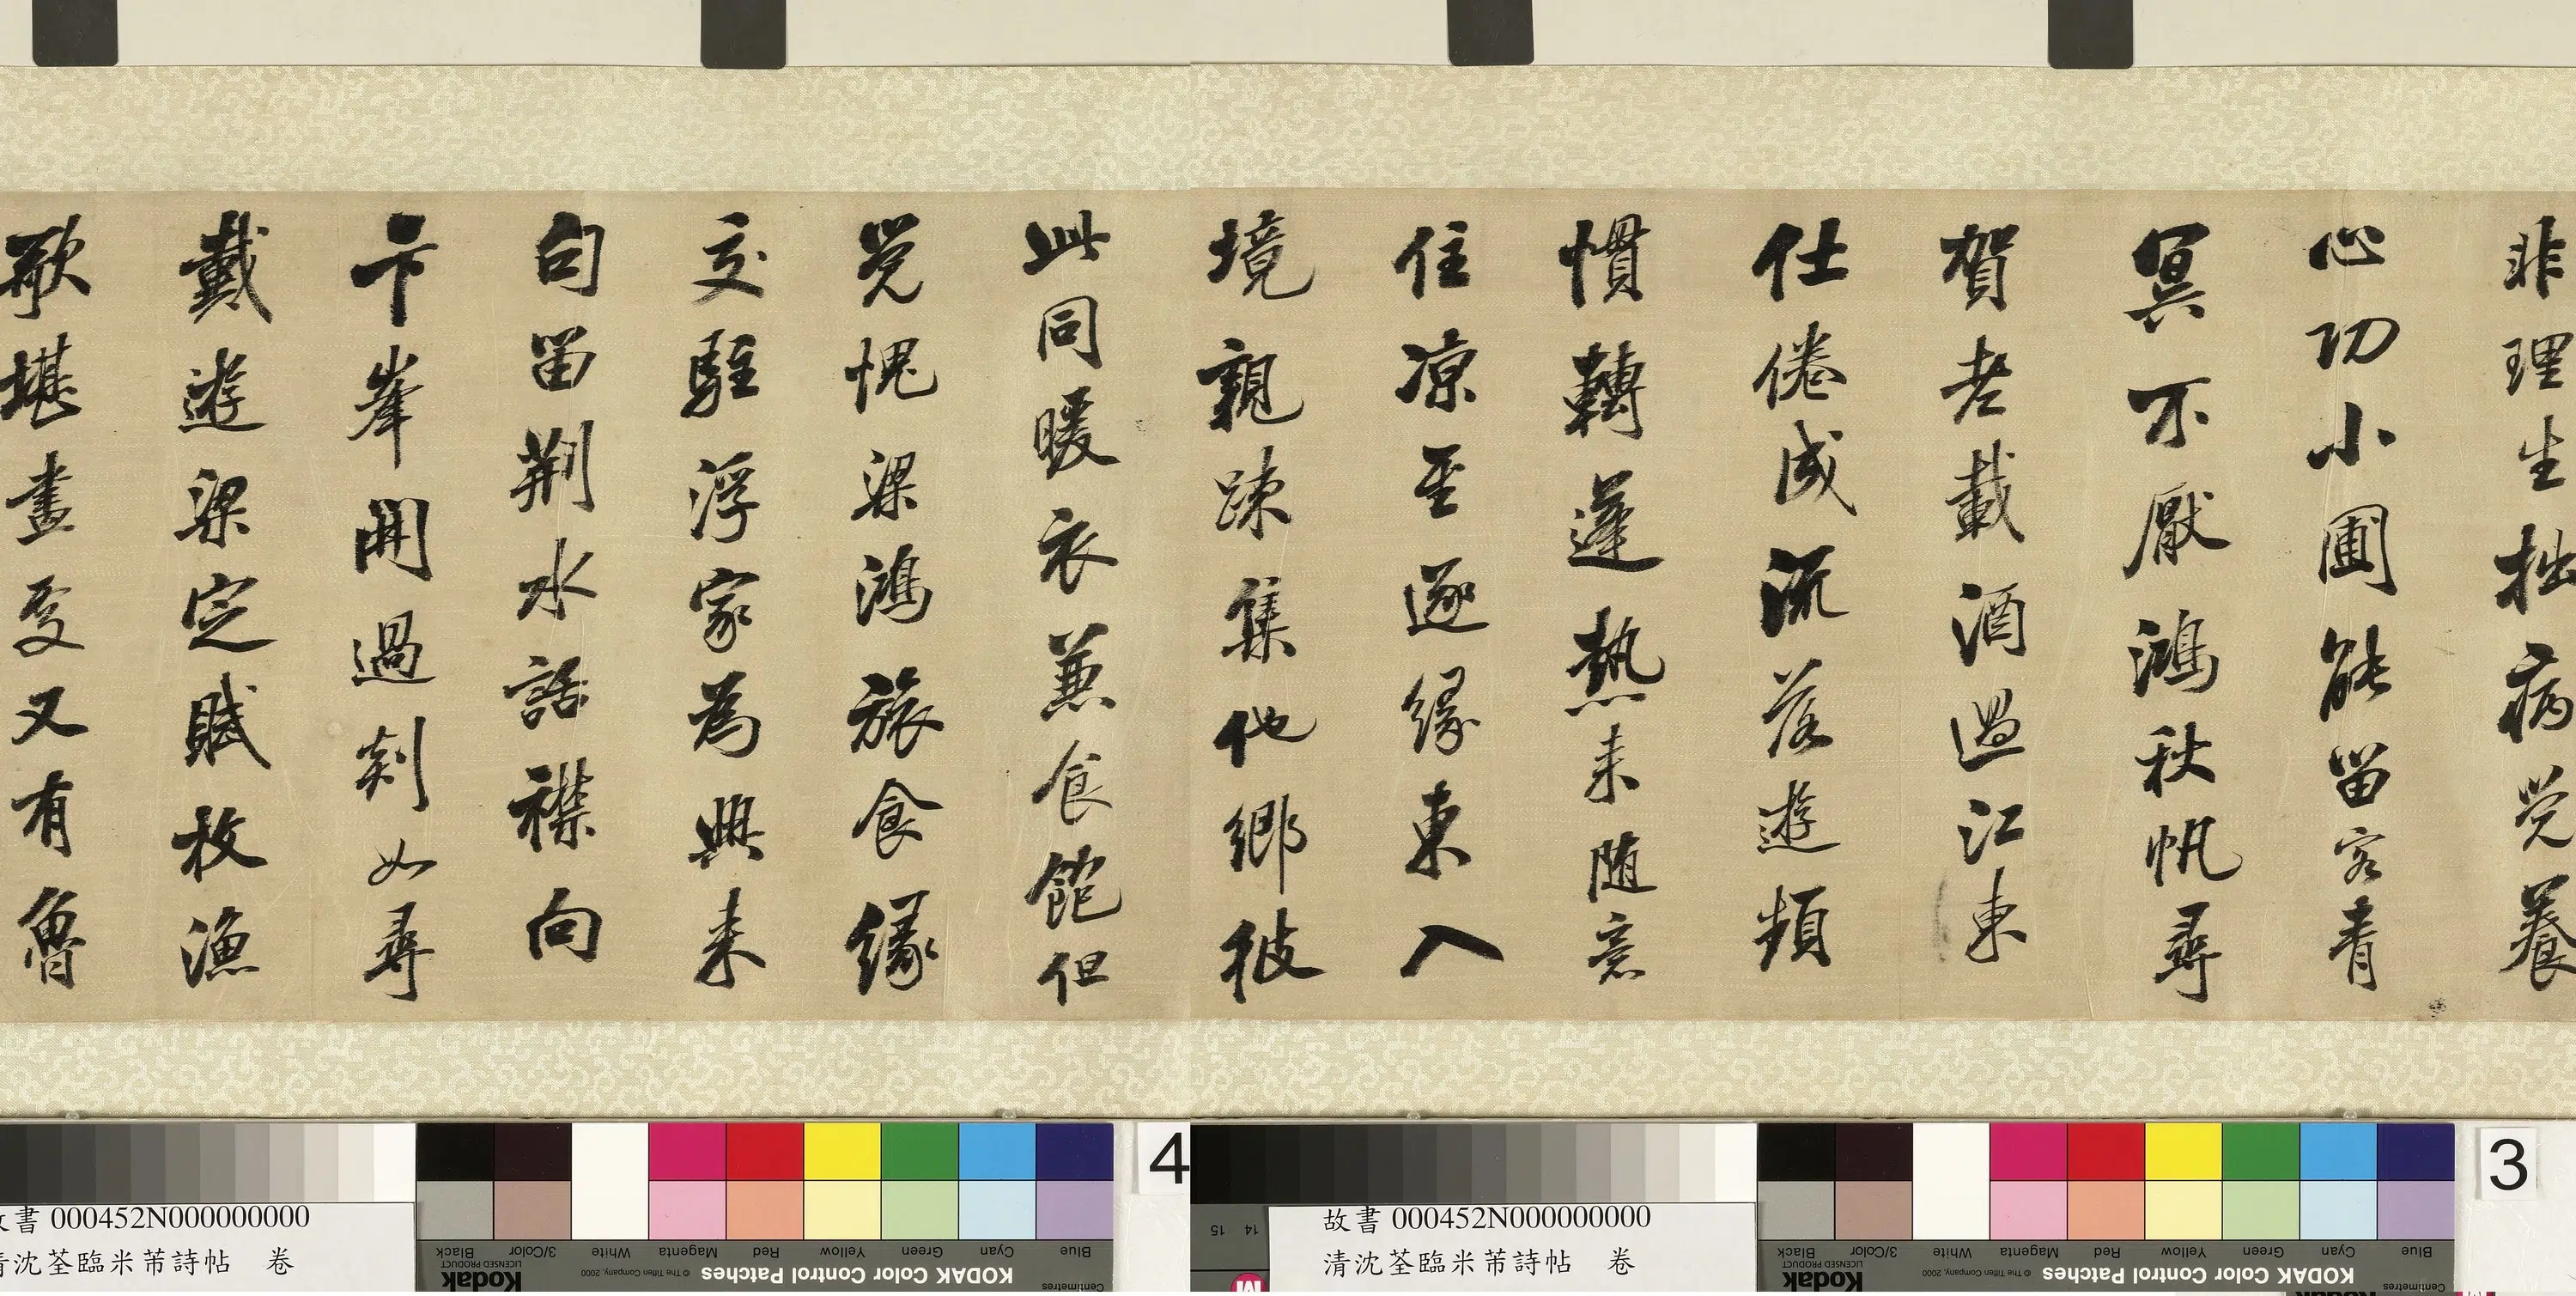 非理生拙病覺養
心功小圃能留客青
冥不厭鴻秋帆尋
賀老載酒過江東
仕倦成流落遊頻
慣轉蓬熱来随意
住凉至逐緣東入
境親疎集他鄉彼
此同暖衣兼食飽但
覺愧梁鴻旅食緣
交駐浮家為興来
句留荆水話襟向
卞峯開過剡如尋
戴遊梁定賦枚漁
歌堪畫處又有魯
4
3
故書 000452N000000000
清沈荃臨米芾詩帖 卷
Black
3/Color
White
Magenta
Red
Yellow
Green
Cyan
Blue
LICENSED PRODUCT
Kodak
© The Tiffen Company, 2000
KODAK Color Control Patches
Centimetres
15 14
故書 000452N000000000
清沈荃臨米芾詩帖 卷
Black
3/Color
White
Magenta
Red
Yellow
Green
Cyan
Blue
LICENSED PRODUCT
Kodak
© The Tiffen Company, 2000
KODAK Color Control Patches
Centimetres